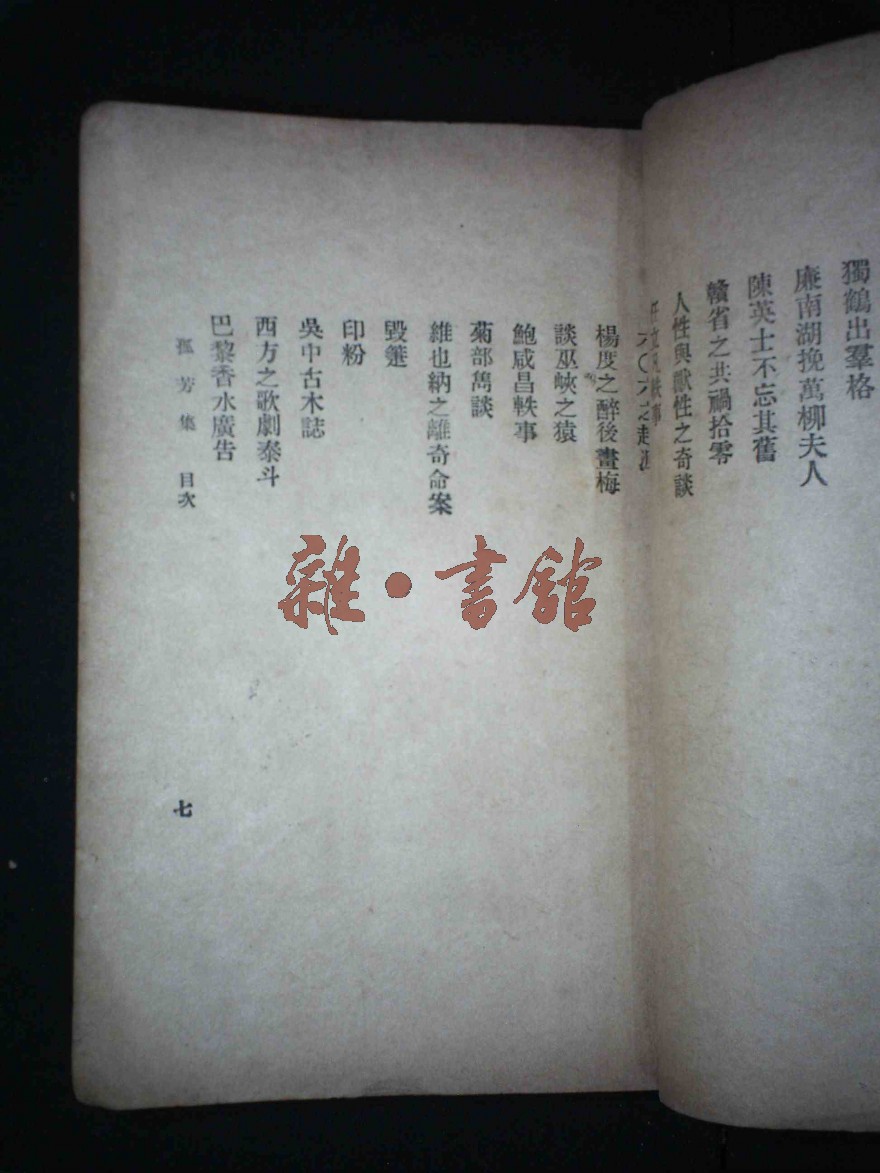 獨鶴出羣格
廉南湖挽萬柳夫人
陳英士不忘其舊
贛省之共禍拾零
人性與獸性之奇談
軼事
六〇六之起
楊度之醉後畫梅
談巫峽之猿
鮑咸昌軼事
菊部雋談
維也納之離奇命案
毀筆
印粉
吳中古木誌
西方之歌劇泰斗
巴黎香水廣告
孤芳集 目次
七
雜·書館